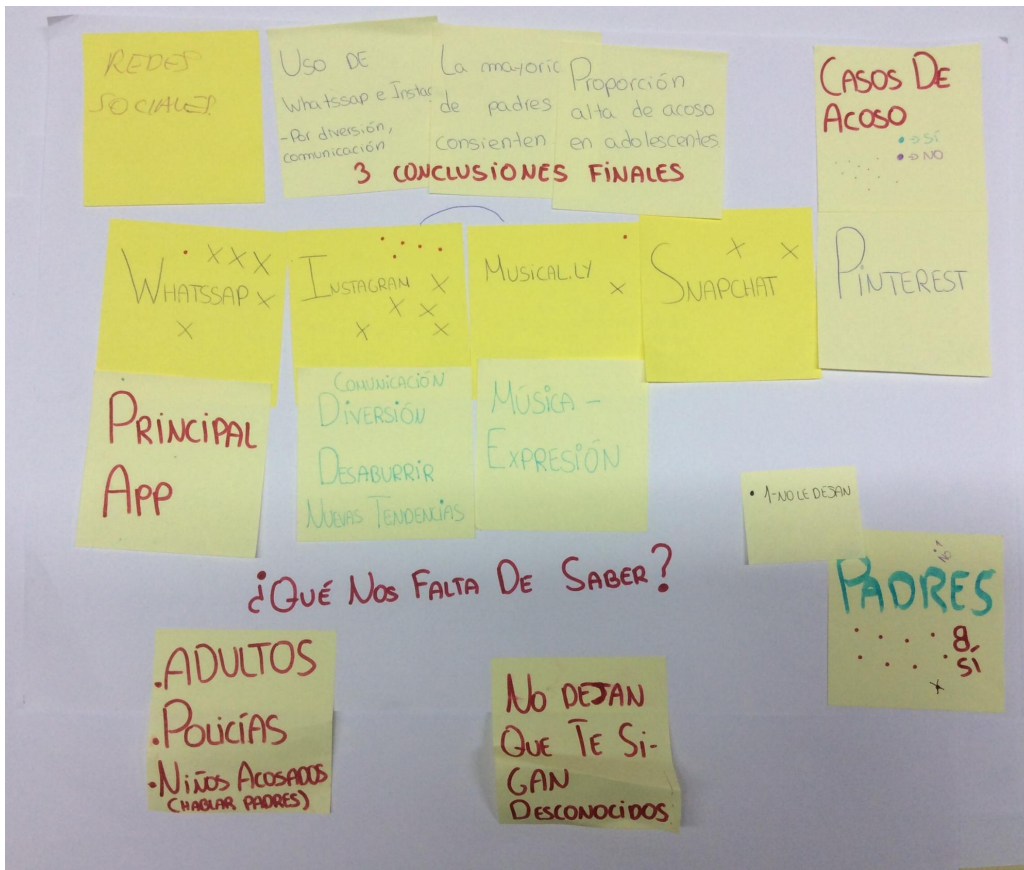 REDES
SOCIALES
USO DE
Whatssap e Instag
-Por diversión,
comunicación
La mayoric
de padres
consienten
Proporción
alta de acoso
en adolescentes
3 CONCLUSIONES FINALES
CASOS DE
ACOSO
• => SÍ
• => NO
WHATSSAP
INSTAGRAM
MUSICAL.LY
SNAPCHAT
PINTEREST
PRINCIPAL
APP
COMUNICACIÓN
DIVERSIÓN
DESABURRIR
NUEVAS TENDENCIAS
MÚSICA -
EXPRESIÓN
• 1-NO LE DEJAN
NO
PADRES
8
SÍ
¿QUÉ NOS FALTA DE SABER?
.ADULTOS
.POLICÍAS
.NIÑOS ACOSADOS
(HABLAR PADRES)
NO DEJAN
QUE TE SI-
GAN
DESCONOCIDOS